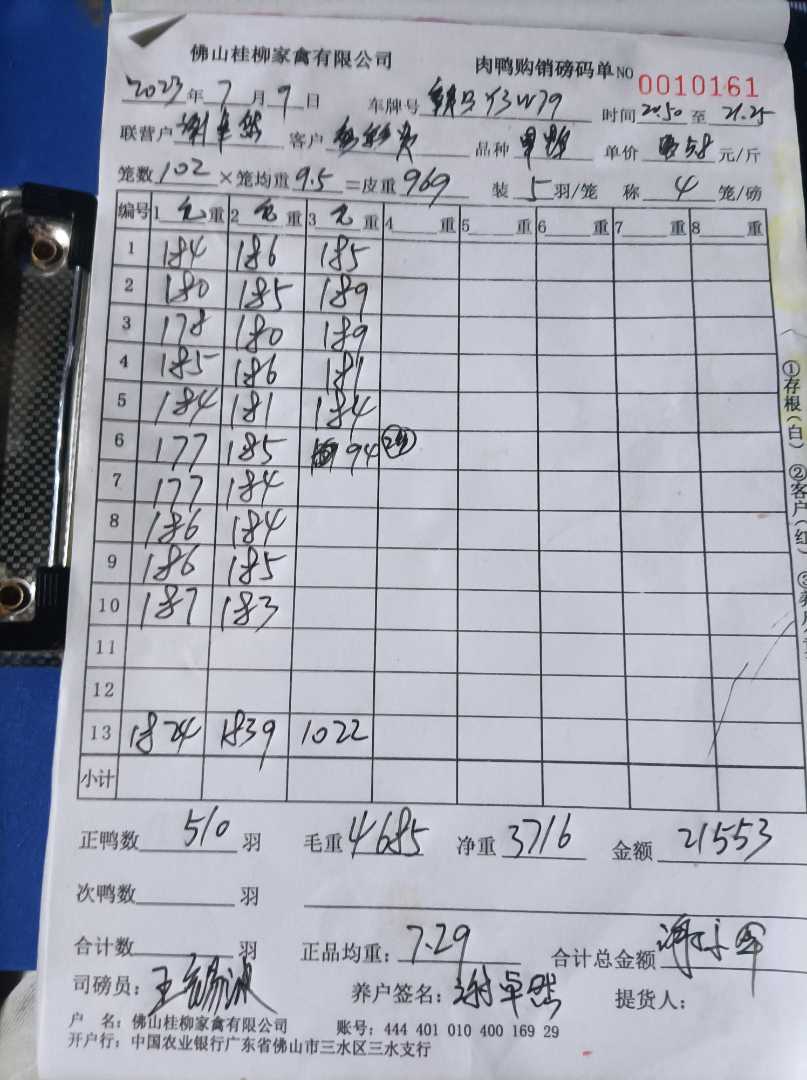 佛山桂柳家禽有限公司 肉鸭购销磅码单 NO 0010161
2023年7月9日 车牌号 Y3W79 时间 20:50 至 21:25
联营户 谢卓然 客户 品种 单价 5.8 元/斤
笼数 102 ×笼均重 9.5 =皮重 969 装 5 羽/笼 称 4 笼/磅
编号 1 重 2 重 3 重 4 重 5 重 6 重 7 重 8 重
1 184 186 185
2 180 185 189
3 178 180 189
4 185 186 181
5 184 181 184
6 177 185 94
7 177 184
8 186 184
9 186 185
10 187 183
11
12
13 1824 1839 1022
小计
正鸭数 510 羽 毛重 4685 净重 3716 金额 21553
次鸭数 羽
合计数 羽 正品均重: 7.29 合计总金额
司磅员: 王锡波 养户签名: 谢卓然 提货人:
户 名: 佛山桂柳家禽有限公司 账号: 444 401 010 400 169 29
开户行: 中国农业银行广东省佛山市三水区三水支行
①存根(白) ②客户(红)